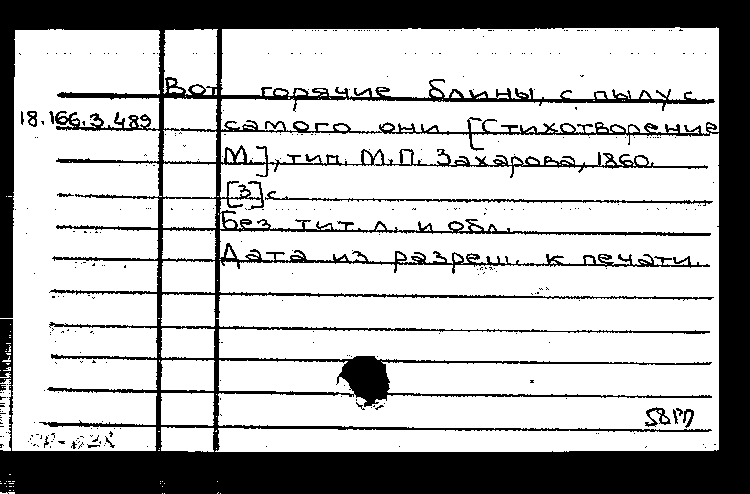 Вот горячие блины, с пылу с
18.166.3.489 самого они. [Стихотворение
М.], тип. М.П. Захарова, 1860.
[3] с.
Без тит. л. и обл.
Дата из разреш. к печати.